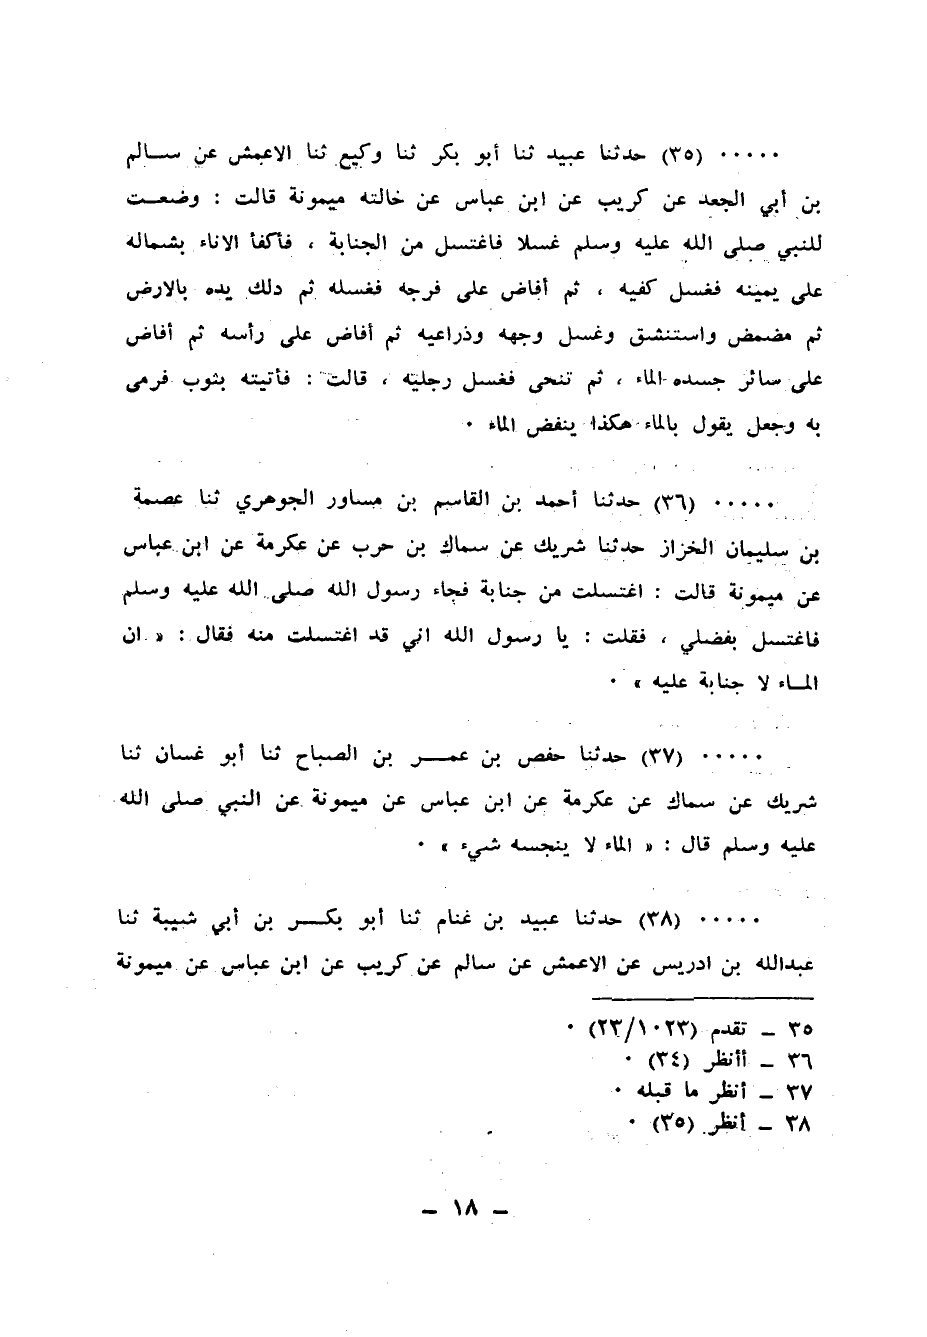 ..... (٣٥) حدثنا عبيد ثنا أبو بكر ثنا وكيع ثنا الاعمش عن سالم
بن أبي الجعد عن كريب عن ابن عباس عن خالته ميمونة قالت : وضعت
للنبي صلى الله عليه وسلم غسلا فاغتسل من الجنابة ، فأكفأ الاناء بشماله
على يمينه فغسل كفيه ، ثم أفاض على فرجه فغسله ثم دلك يده بالارض
ثم مضمض واستنشق وغسل وجهه وذراعيه ثم أفاض على رأسه ثم أفاض
على سائر جسده الماء ، ثم تنحى فغسل رجليه ، قالت : فأتيته بثوب فرمى
به وجعل يقول بالماء هكذا ينفض الماء .
..... (٣٦) حدثنا أحمد بن القاسم بن مساور الجوهري ثنا عصمة
بن سليمان الخزاز حدثنا شريك عن سماك بن حرب عن عكرمة عن ابن عباس
عن ميمونة قالت : اغتسلت من جنابة فجاء رسول الله صلى الله عليه وسلم
فاغتسل بفضلي ، فقلت : يا رسول الله اني قد اغتسلت منه فقال : « ان
الماء لا جنابة عليه » .
..... (٣٧) حدثنا حفص بن عمر بن الصباح ثنا أبو غسان ثنا
شريك عن سماك عن عكرمة عن ابن عباس عن ميمونة عن النبي صلى الله
عليه وسلم قال : « الماء لا ينجسه شيء » .
..... (٣٨) حدثنا عبيد بن غنام ثنا أبو بكر بن أبي شيبة ثنا
عبدالله بن ادريس عن الاعمش عن سالم عن كريب عن ابن عباس عن ميمونة
٣٥ ـ تقدم (٢٣/١٠٢٣) .
٣٦ ـ أأنظر (٣٤) .
٣٧ ـ أنظر ما قبله .
٣٨ ـ أنظر (٣٥) .
ـ ١٨ ـ